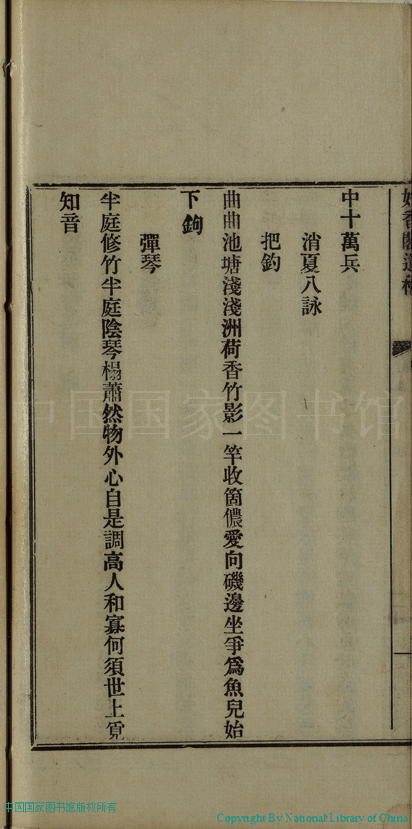 中十萬兵
消夏八詠
把釣
曲曲池塘淺淺洲荷香竹影一竿收箇儂愛向磯邊坐爭爲魚兒始
下鉤
彈琴
半庭修竹半庭陰琴榻蕭然物外心自是調高人和寡何須世上覓
知音
中国国家图书馆
中国国家图书馆版权所有
Copyright By National Library of China